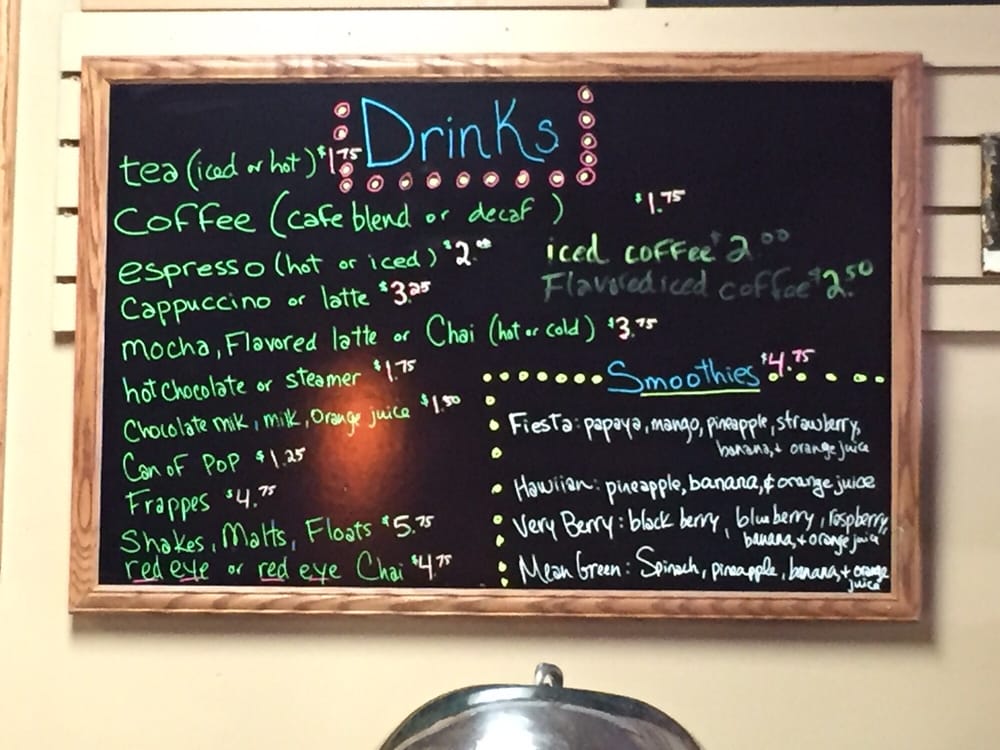 Drinks
tea (iced or hot) $1.75
Coffee (cafe blend or decaf) $1.75
espresso (hot or iced) $2.00
iced coffee $2.00
Flavored iced coffee $2.50
Cappuccino or latte $3.25
mocha, Flavored latte or Chai (hot or cold) $3.75
hot chocolate or steamer $1.75
Chocolate milk, milk, Orange juice $1.50
Can of Pop $1.25
Frappes $4.75
Shakes, Malts, Floats $5.75
red eye or red eye Chai $4.75
Smoothies $4.75
Fiesta: papaya, mango, pineapple, strawberry,
banana, + orange juice
Hawiian: pineapple, banana, & orange juice
Very Berry: black berry, blue berry, raspberry,
banana, + orange juice
Mean Green: Spinach, pineapple, banana, + orange
juice